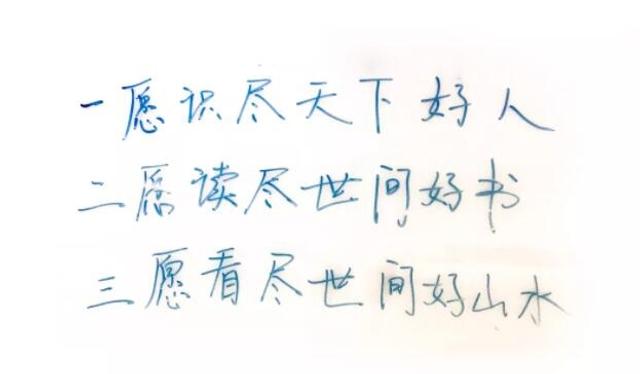 一愿识尽天下好人
二愿读尽世间好书
三愿看尽世间好山水